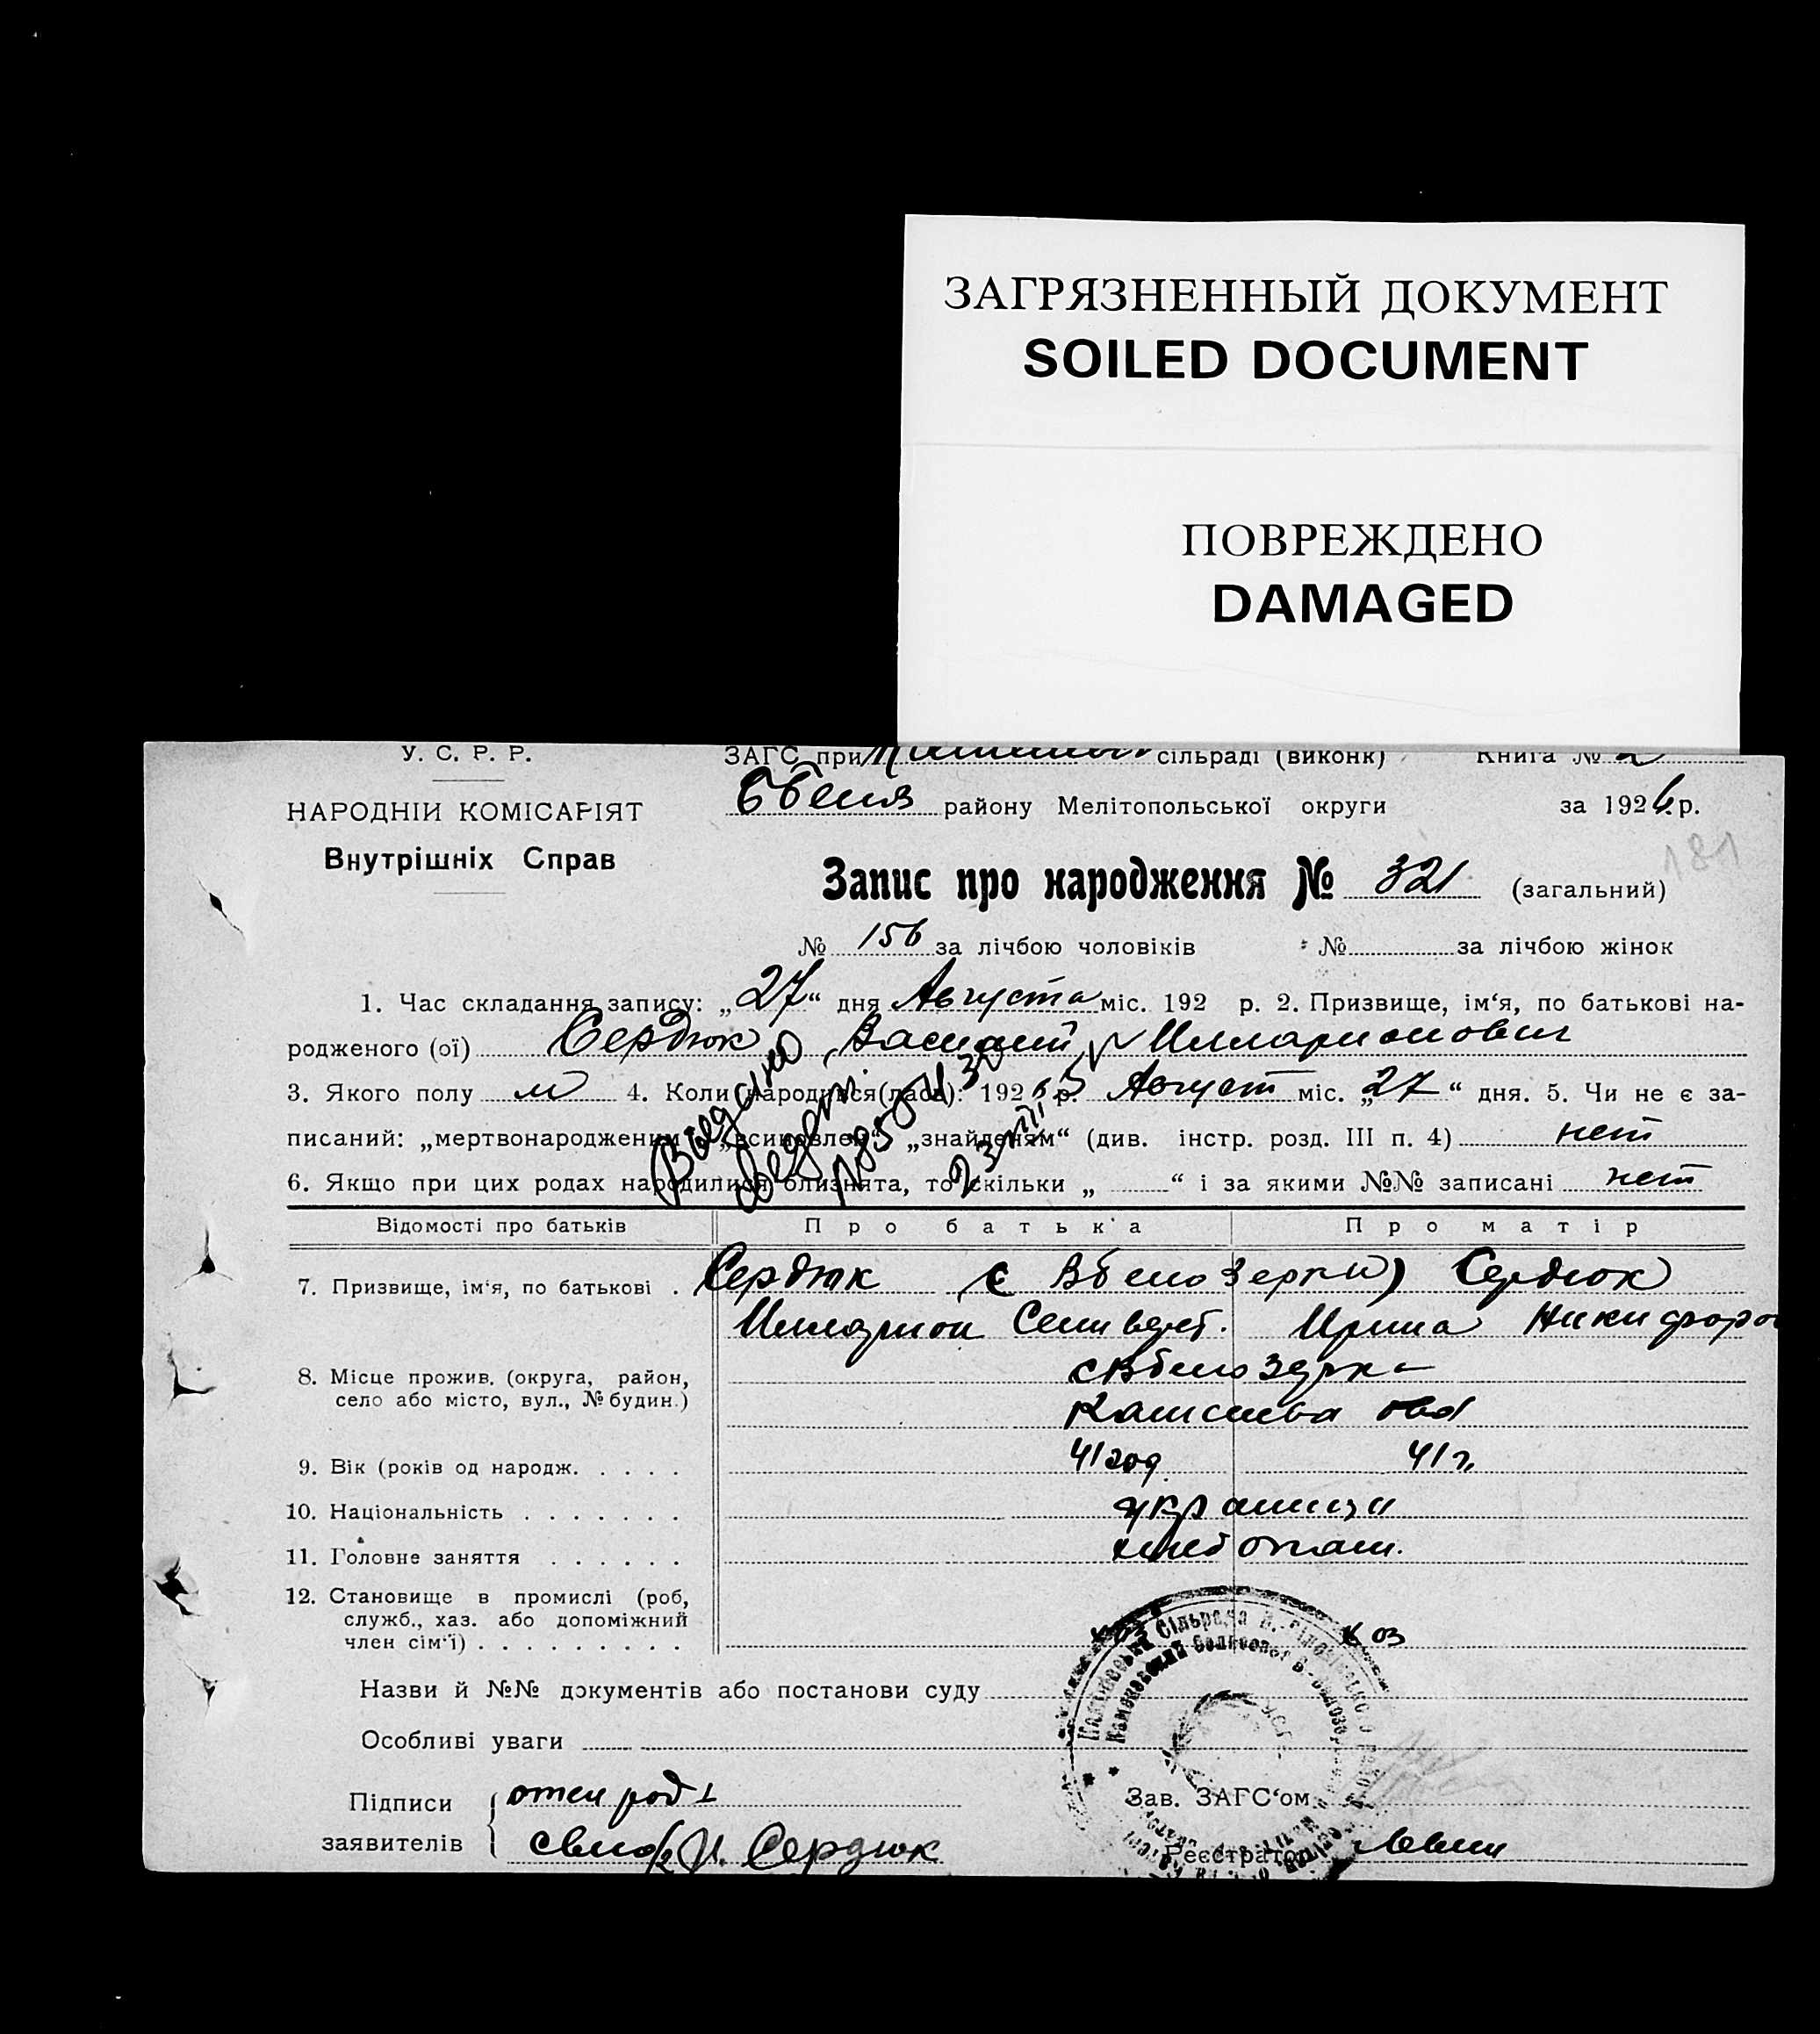 ЗАГРЯЗНЕННЫЙ ДОКУМЕНТ
SOILED DOCUMENT
ПОВРЕЖДЕНО
DAMAGED
У. С. Р. Р.
ЗАГС при сільраді (виконк) Книга № 2
НАРОДНІЙ КОМІСАРІЯТ
району Мелітопольської округи за 1926 р.
Внутрішніх Справ
181
Запис про народження № 321 (загальний)
№ 156 за лічбою чоловіків № за лічбою жінок
1. Час складання запису: „27“ дня Августа міс. 192 р. 2. Призвище, ім‘я, по батькові на-
родженого (ої) Сердюк Василий Илларионович
3. Якого полу м 4. Коли народився(лась): 1926 р. Август міс. „27“ дня. 5. Чи не є за-
писаний: „мертвонародженим“ „всиновлен“ „знайденям“ (див. інстр. розд. III п. 4) нет
6. Якщо при цих родах народилися близнята, то скільки „ “ і за якими №№ записані нет
Выдано
Відомості про батьків Про батька Про матір
7. Призвище, ім‘я, по батькові . Сердюк Сердюк
Илларион Ирина
8. Місце прожив. (округа, район,
село або місто, вул., № будин.)
9. Вік (років од народж. . . . . 41 год 41 г.
10. Національність . . . . . . . украинци
11. Головне заняття . . . . . . хлебопаш.
12. Становище в промислі (роб,
служб., хаз. або допоміжний
член сім‘ї) . . . . . . . . .
Назви й №№ документів або постанови суду
Особливі уваги
Підписи
Зав. ЗАГС‘ом
заявителів И. Сердюк
Реєстратор